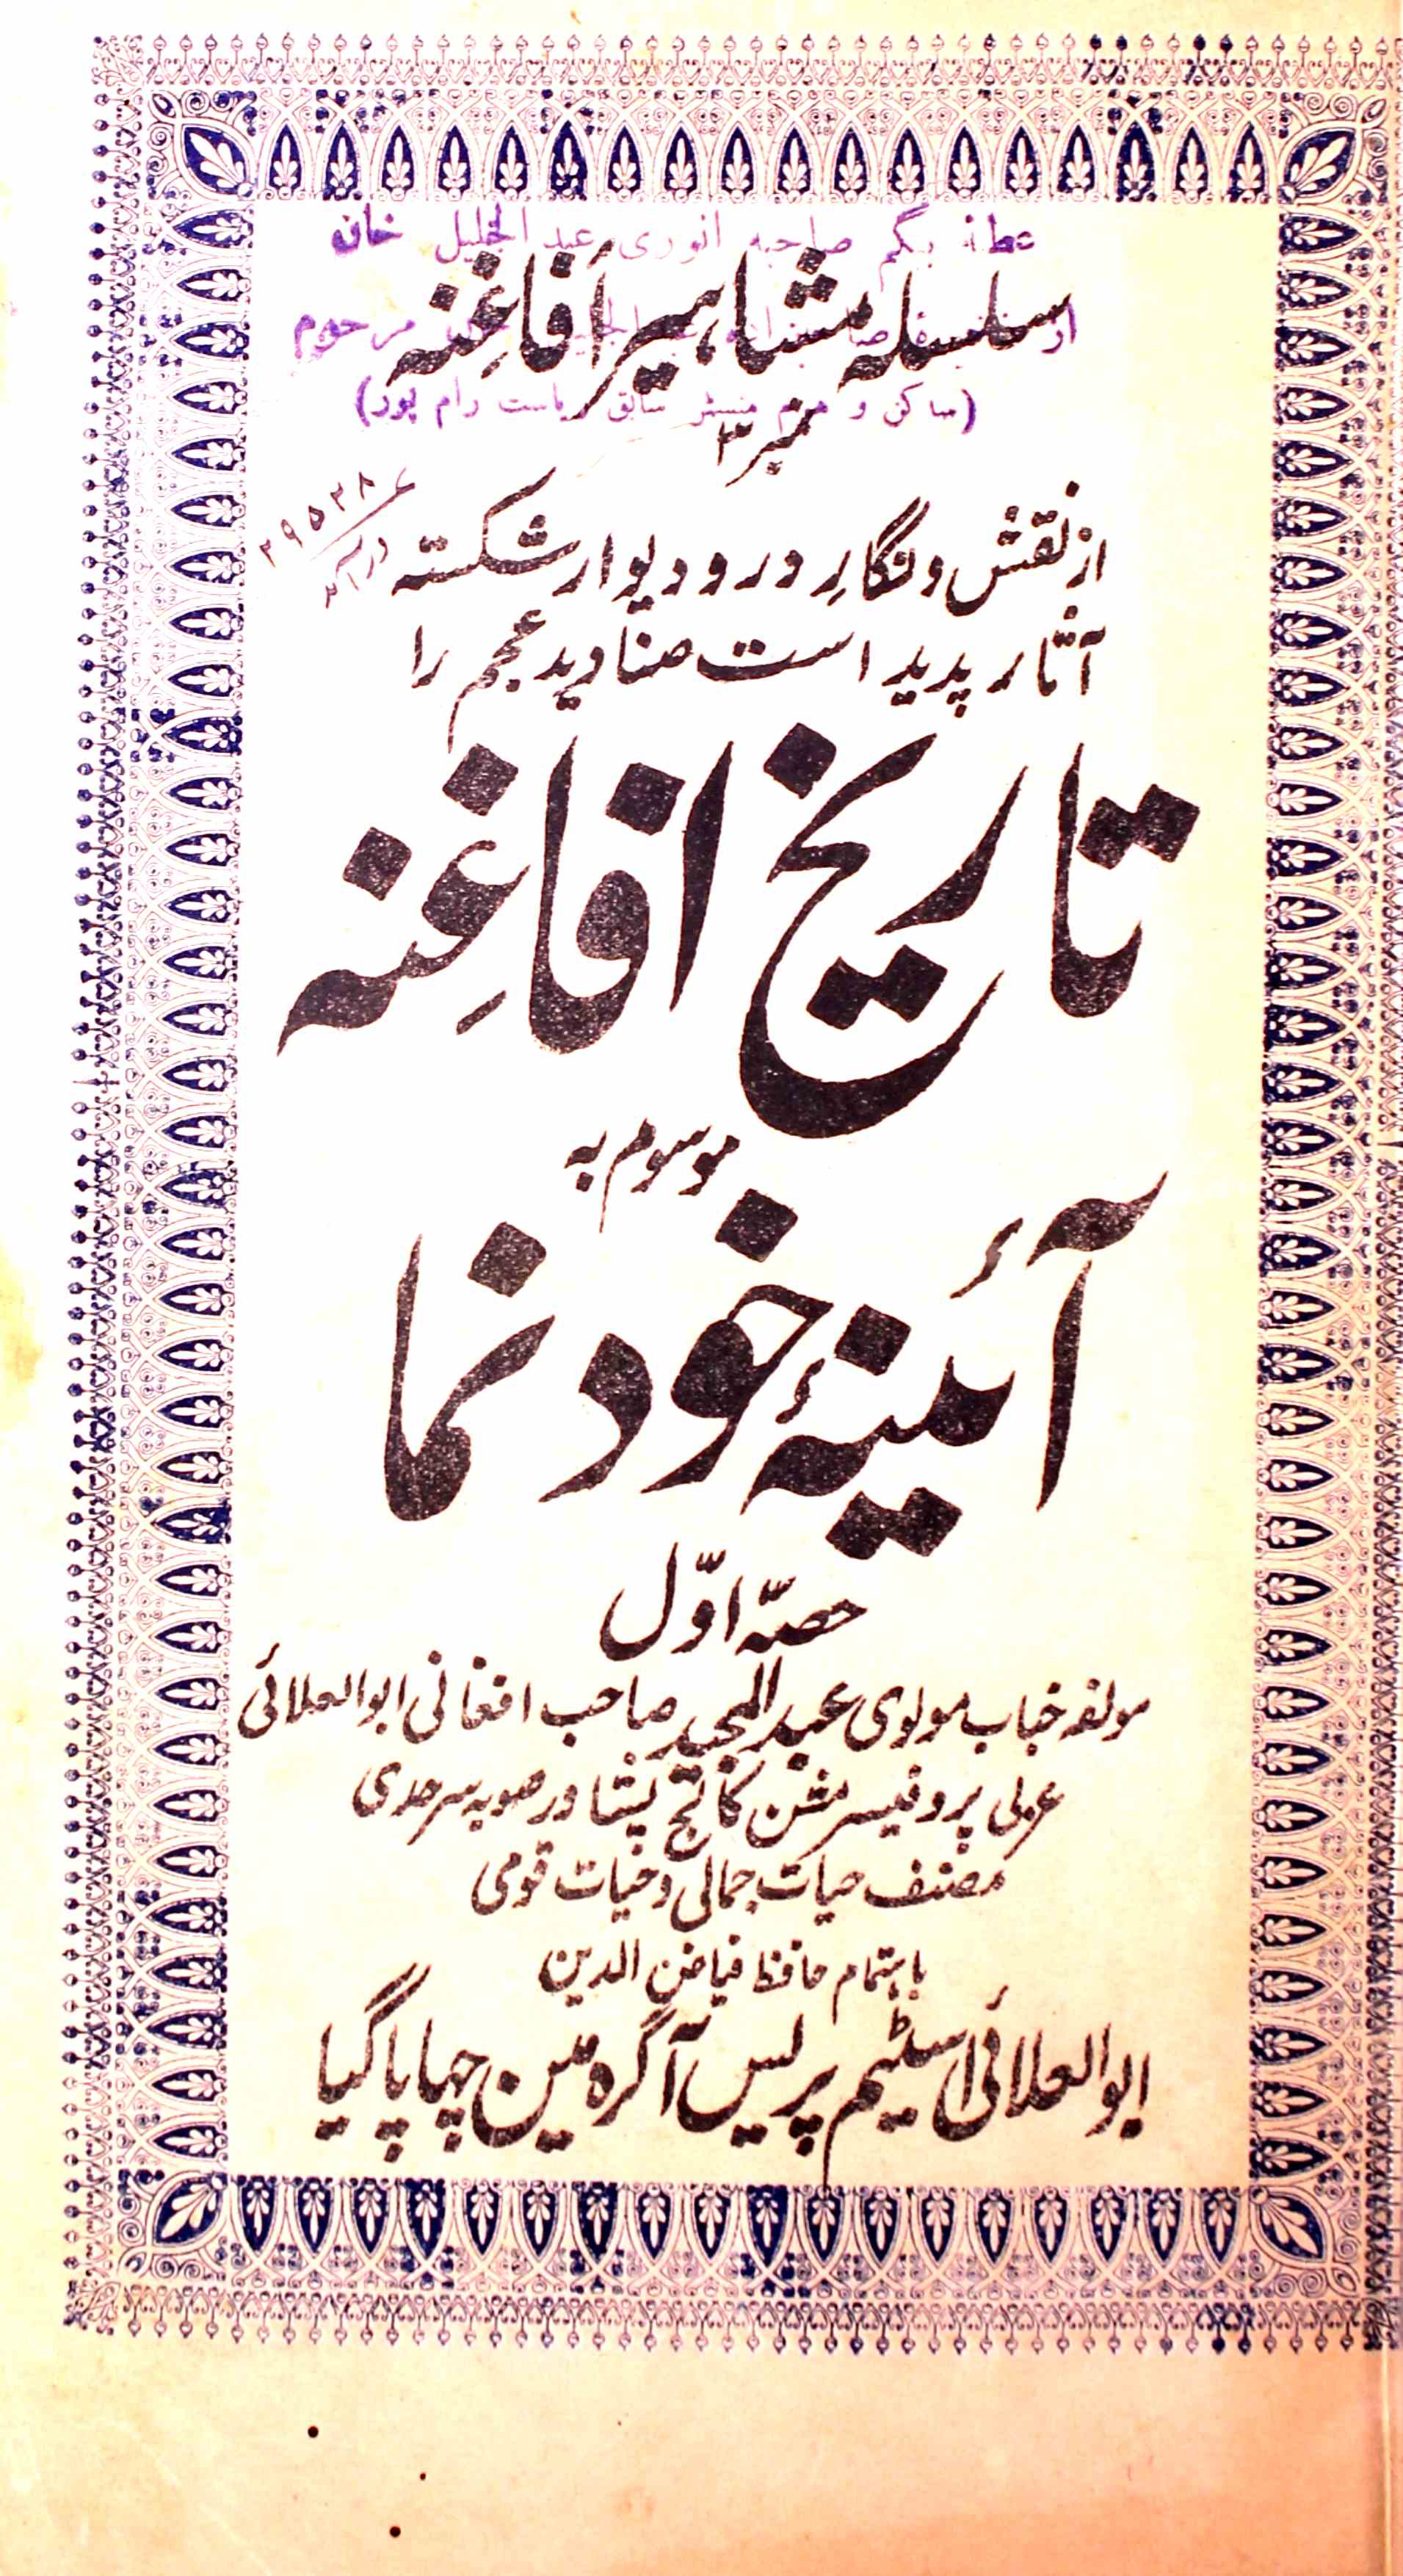 عطیۂ بیگم صاحبہ انوری عبد الجلیل خان
سلسلہ مشاہیر أفاغِنہ
مرحوم
(ساکن و ہوم منسٹر سابق ریاست رام پور)
نمبر ۳
۲۹۵۲۸
از نقش و نگارِ در و دیوار شکستہ
آثار پدید است صنادید عجم را
تاریخ افاغِنہ
موسوم بہ
آئینۂ خود نما
حصّہ اوّل
مولفہ جناب مولوی عبد المجید صاحب افغانی ابوالعلائی
عربی پروفیسر مشن کالج پشاور صوبہ سرحدی
مصنف حیات جمالی و حیات قومی
باہتمام حافظ فیاض الدین
ابوالعلائی اسٹیم پریس آگرہ مین چہاپا گیا